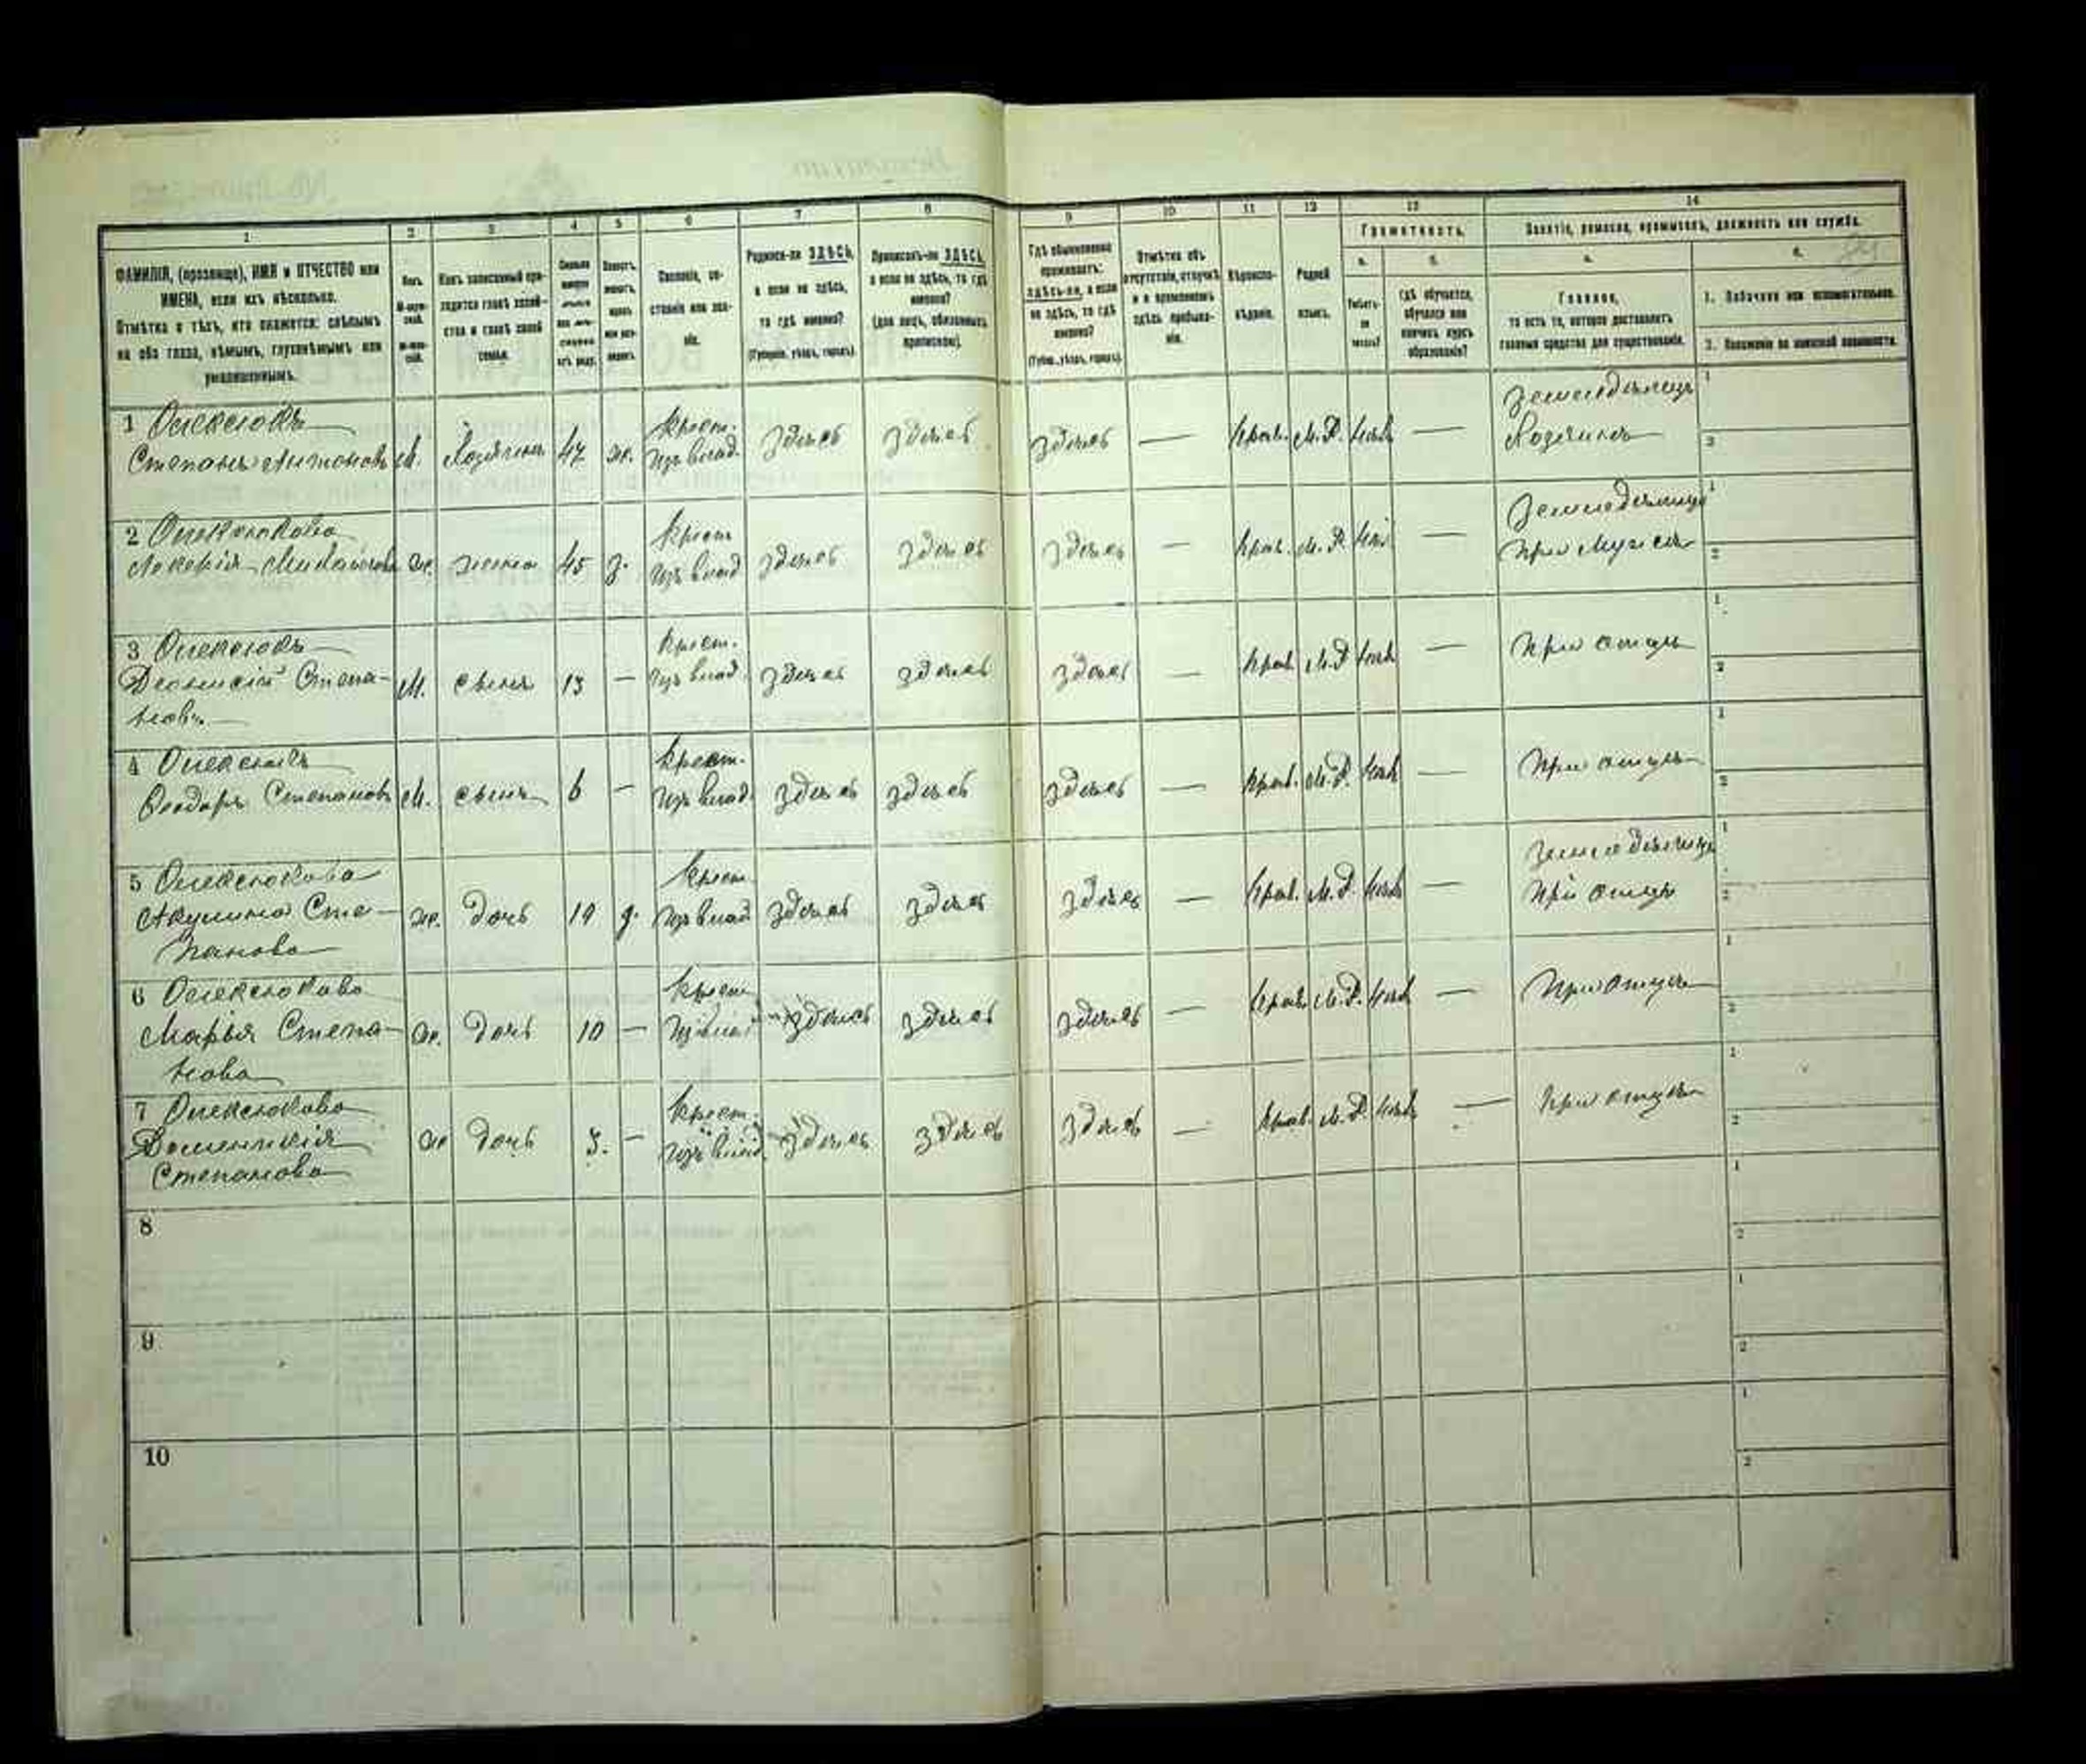 1 2 3 4 5 6 7 8 9 10 11 12 13 14
ФАМИЛІЯ, (прозвище), ИМЯ и ОТЧЕСТВО или
ИМЕНА, если ихъ нѣсколько.
Отмѣтка о тѣхъ, кто окажется: слѣпымъ
на оба глаза, нѣмымъ, глухонѣмымъ или
умалишеннымъ.
Полъ.
Какъ записанный при-
ходится главѣ хозяй-
ства и главѣ своей
семьи.
Сословіе, со-
стояніе или зва-
ніе.
Родился-ли ЗДѢСЬ,
а если не здѣсь,
то гдѣ именно?
(Губернія, уѣздъ, городъ).
Приписанъ-ли ЗДѢСЬ,
а если не здѣсь, то гдѣ
именно?
(для лицъ, обязанныхъ
припискою).
Гдѣ обыкновенно
проживаетъ:
здѣсь-ли, а если
не здѣсь, то гдѣ
именно?
(Губ., уѣздъ, городъ).
Отмѣтка объ
отсутствіи, отлучкѣ
и о временномъ
здѣсь пребыва-
ніи.
Вѣроиспо-
вѣданіе.
Родной
языкъ.
Грамотность.
а.
б.
Умѣетъ-
ли
читать?
Гдѣ обучается,
обучался или
кончилъ курсъ
образованія?
Занятіе, ремесло, промыселъ, должность или служба.
а.
Главное,
то есть то, которое доставляетъ
главныя средства для существованія.
б.
1. Побочное или вспомогательное.
2. Положеніе по воинской повинности.
1 Олексюкъ
Степанъ Антоновъ М. Хозяинъ 47 ж. крест. изъ влад. здѣсь здѣсь здѣсь — прав. М.Р. нѣтъ — Земледѣлецъ
Хозяинъ
2 Олексюкова
ж. жена 45 з. крест. изъ влад. здѣсь здѣсь здѣсь — прав. М.Р. нѣтъ — Земледѣлица
при мужѣ
3 Олексюкъ
Степа-
новъ М. сынъ 13 — крест. изъ влад. здѣсь здѣсь здѣсь — прав. М.Р. нѣтъ — при отцѣ
4 Олексюкъ
Ѳеодоръ Степановъ М. сынъ 6 — крест. изъ влад. здѣсь здѣсь здѣсь — прав. М.Р. нѣтъ — при отцѣ
5 Олексюкова
Акулина Сте-
панова ж. дочь 19 д. крест. изъ влад. здѣсь здѣсь здѣсь — прав. М.Р. нѣтъ — Земледѣлица
при отцѣ
6 Олексюкова
Марья Степа-
нова ж. дочь 10 — крест. изъ влад. здѣсь здѣсь здѣсь — прав. М.Р. нѣтъ — при отцѣ
7 Олексюкова
Доминикія
Степанова ж. дочь 3. — крест. изъ влад. здѣсь здѣсь здѣсь — прав. М.Р. нѣтъ — при отцѣ
8
9
10